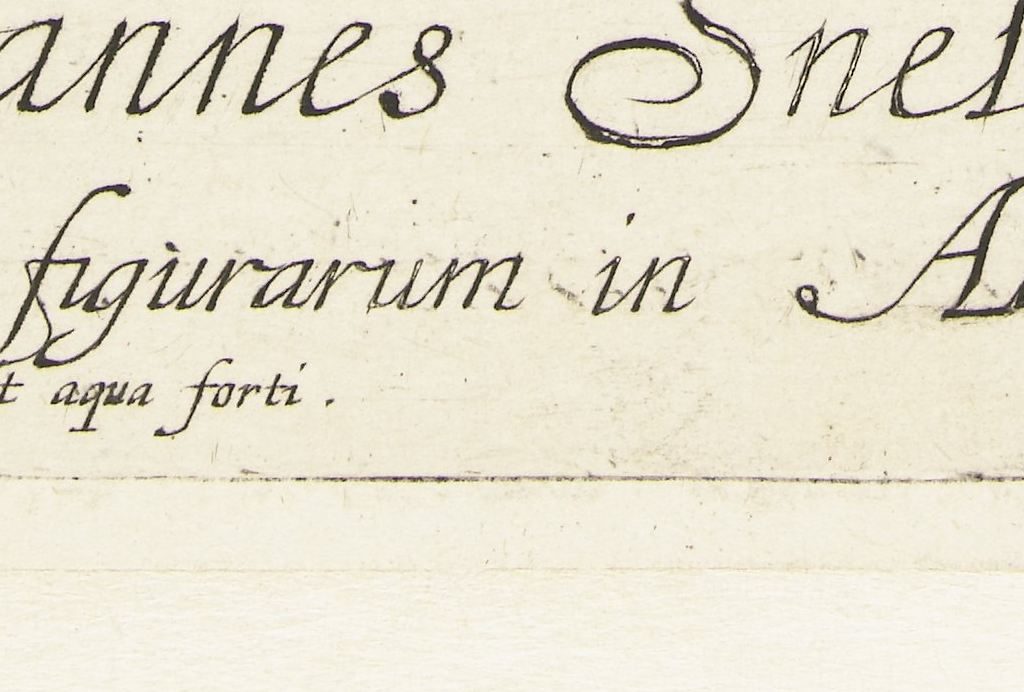 annes Snel
figurarum in A
t aqua forti.